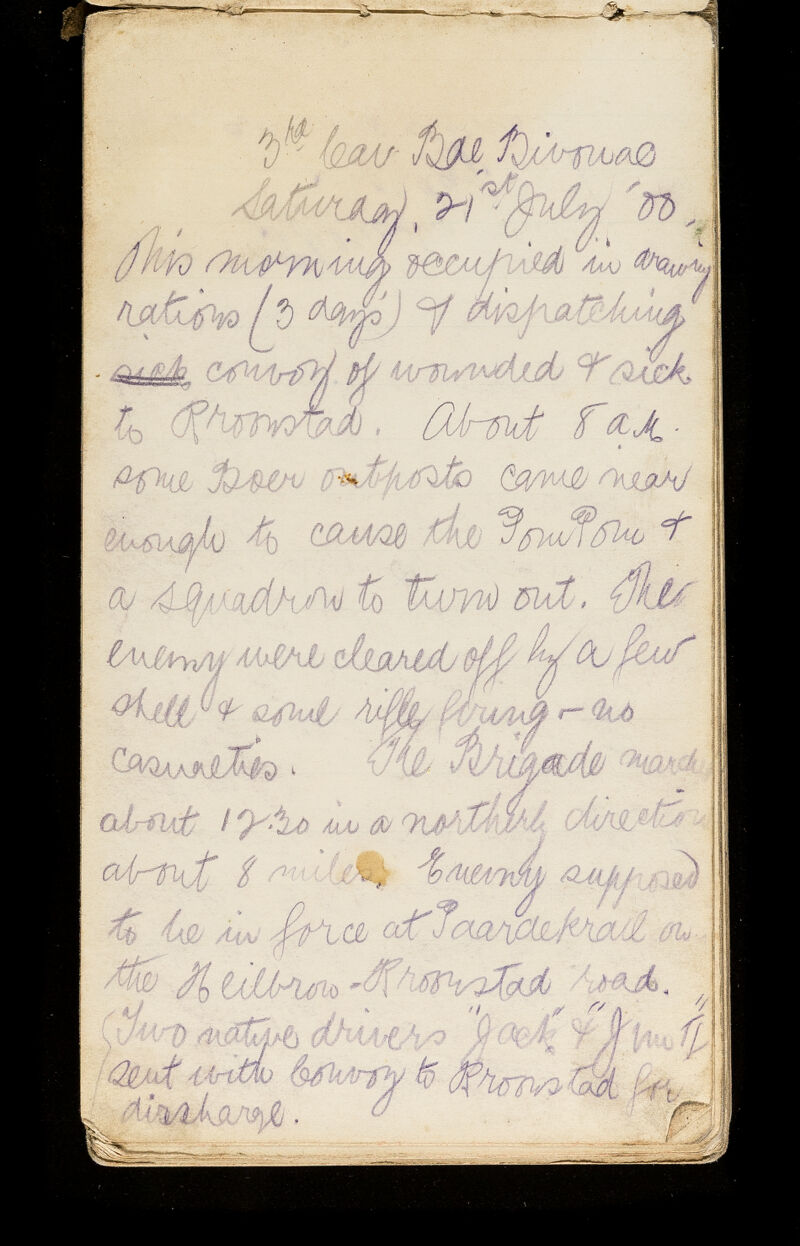 3rd Cav Bde, Bivouac
Saturday, 21st July '00.
This morning occupied in drawing
rations (3 days) & dispatching
sick convoy of wounded & sick
to Kroonstad. About 8 a.m.
some Boer outposts came near
enough to cause the PomPom &
a squadron to turn out. The
enemy were cleared off by a few
shell & some rifle firing - no
casualties. The Brigade marched
about 12.30 in a northerly direction
about 8 miles. Enemy supposed
to be in force at Paardekraal on
the Heilbron-Kroonstad road.
(Two native drivers "Jack" & "Jim II"
sent with Convoy to Kroonstad for
discharge.